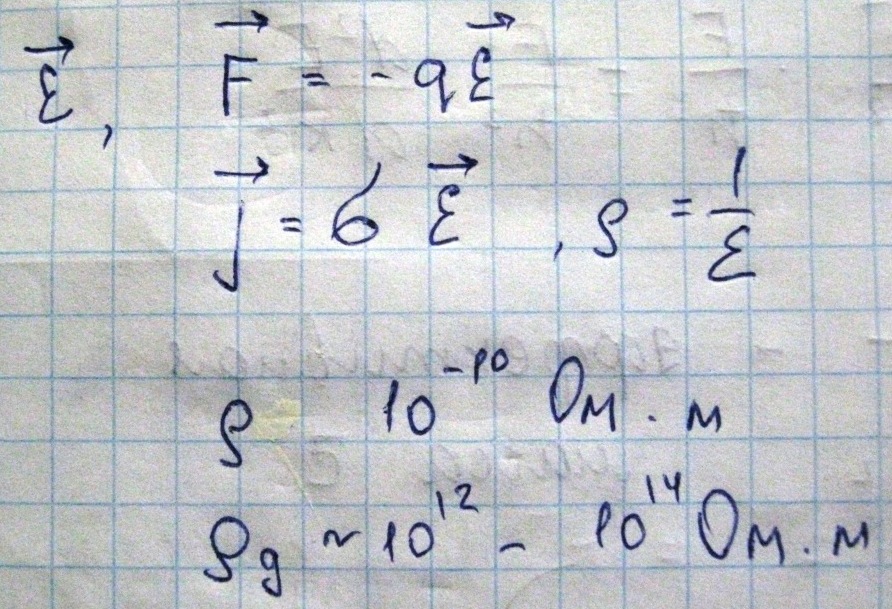 ε⃗, F⃗ = -qε⃗
j⃗ = σ ε⃗, ρ = 1/ε
ρ 10⁻¹⁰ Ом · м
ρg ~ 10¹² - 10¹⁴ Ом · м